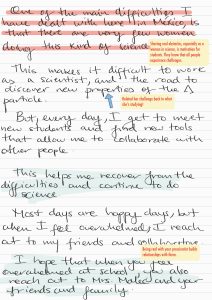 One of the main difficulties I
have dealt with here in Mexico, is
that there are very few women
doing this kind of science.
Sharing real obstacles, especially as a
woman in science, is motivation for
students. They know that all people
experience challenges.
This makes it difficult to work
as a scientist, and the road to
discover new properties of the Δ
particle.
Related her challenge back to what
she's studying!
But, every day, I get to meet
new students and find new tools
that allow me to collaborate with
other people.
This helps me recover from the
difficulties and continue to do
science
Most days are happy days, but
when I feel overwhelmed, I reach
out to my friends and
Being real with your penname builds
relationships with them.
I hope that when you feel
overwhelmed at school, you also
reach out to Mrs. and your
friends and family